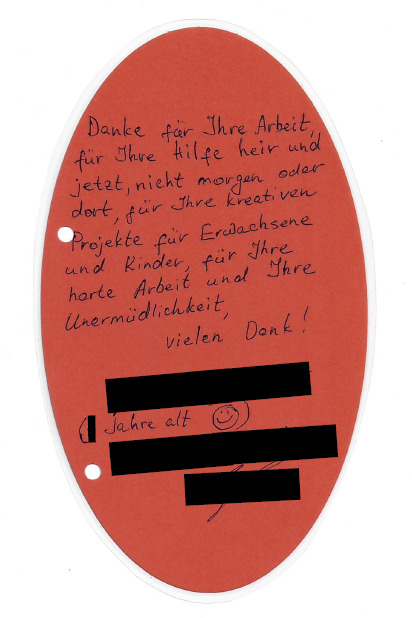 Danke für Ihre Arbeit,
für Ihre Hilfe heir und
jetzt, nicht morgen oder
dort, für Ihre kreativen
Projekte für Erwachsene
und Kinder, für Ihre
harte Arbeit und Ihre
Unermüdlichkeit,
vielen Dank!
( Jahre alt ☺)